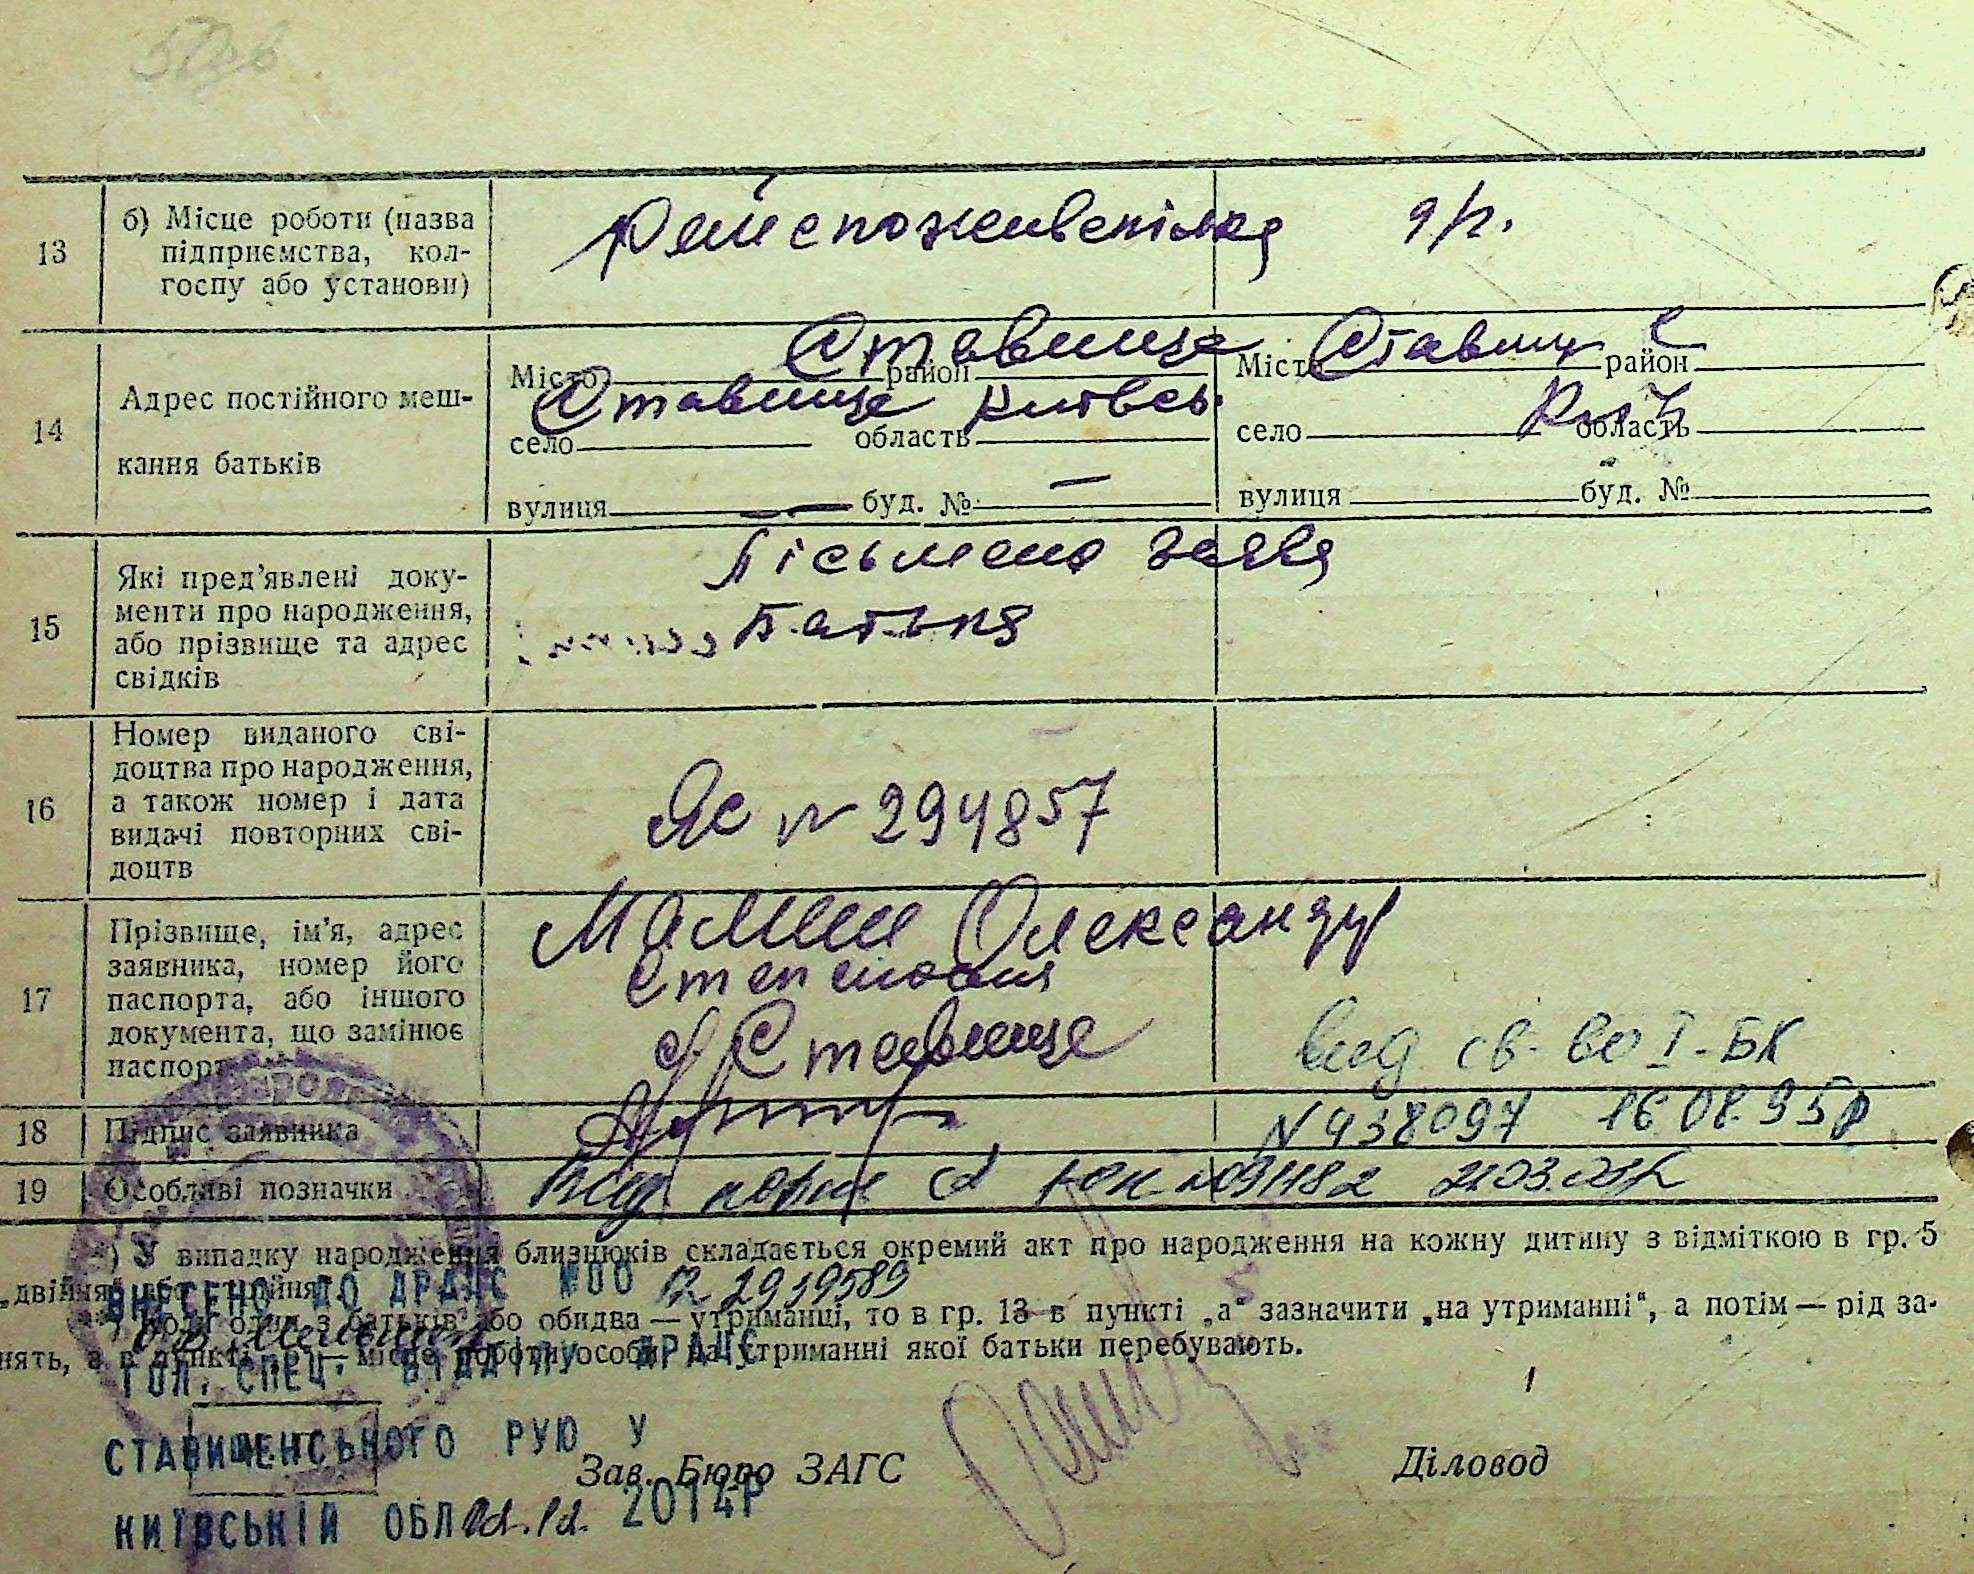 13
б) Місце роботи (назва
підприємства, кол-
госпу або установи)
Райспоживспілка
14
Адрес постійного меш-
кання батьків
Ставище Ставищ
Місто район Місто район
Ставище Київсь
село область село область
вулиця — буд. № — вулиця буд. №
15
Які пред'явлені доку-
менти про народження,
або прізвище та адрес
свідків
Пісьмена заява
Батька
16
Номер виданого сві-
доцтва про народження,
а також номер і дата
видачі повторних сві-
доцтв
ЯС № 294857
17
Прізвище, ім'я, адрес
заявника, номер його
паспорта, або іншого
документа, що замінює
паспорт
Олександр
Степанович
Ставище
вид св-во I-БК
N 438097 16.08.95р
18
Підпис заявника
19
Особливі позначки
*) У випадку народження близнюків складається окремий акт про народження на кожну дитину з відміткою в гр. 5
„двійня" або „трійня"
ВНЕСЕНО ДО ДРАЦС №00 2919589
**) Коли один з батьків або обидва — утриманці, то в гр. 13 в пункті „а" зазначити „на утриманні", а потім — рід за-
нять, а в пункті „б" — місце роботи особи, на утриманні якої батьки перебувають.
ГОЛ. СПЕЦ. ВІДДІЛУ ДРАЦС
СТАВИЩЕНСЬКОГО РУЮ У
Зав. Бюро ЗАГС Діловод
КИЇВСЬКІЙ ОБЛ 2014Р